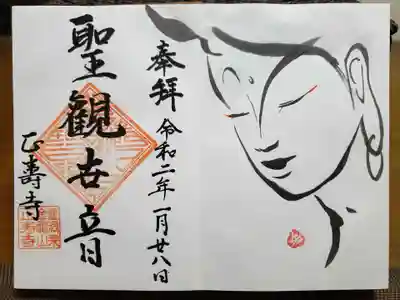 奉拝 令和二年一月廿八日
聖観世音
正壽寺